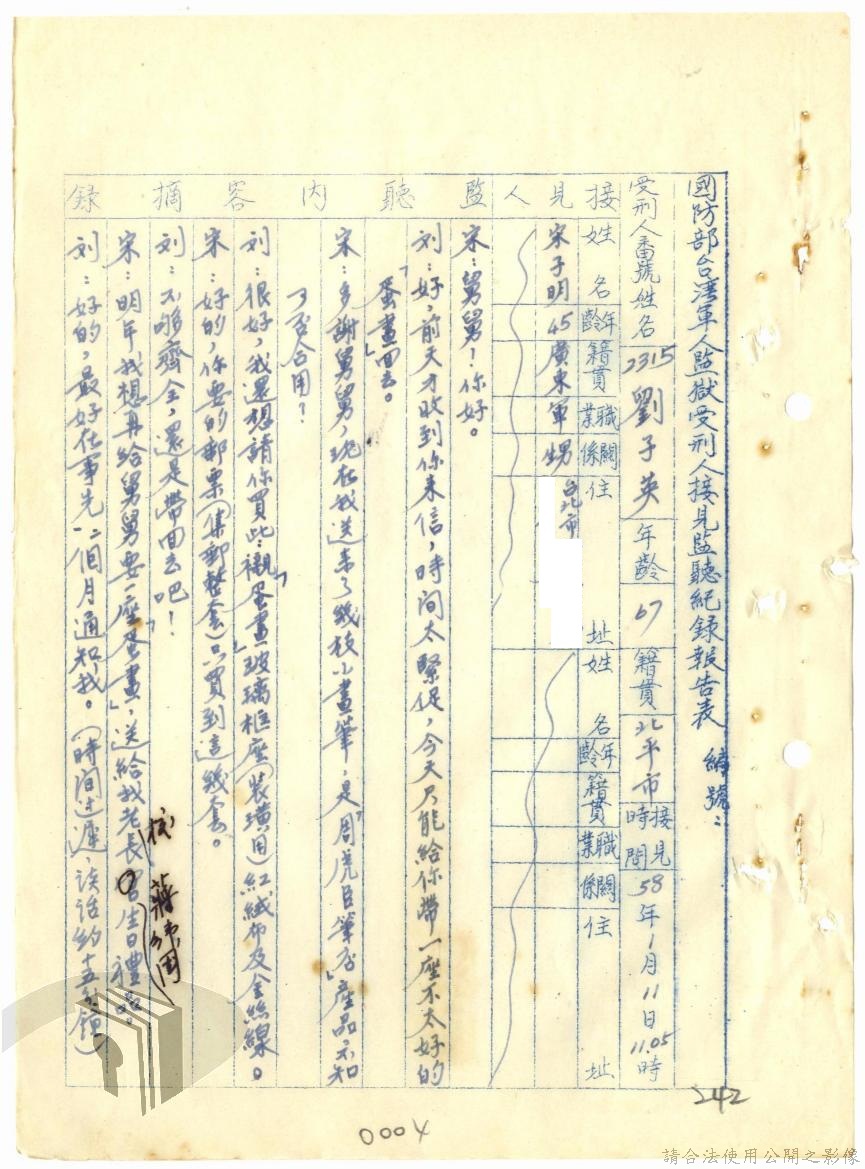 國防部台湾軍人監獄受刑人接見監聽紀錄報告表　編號：
受刑人番號姓名　2315　劉子英　年齡　67　籍貫　北平市　接見時間　58年1月11日11.05時
接見人　姓名　年齡　籍貫　職業　關係　住址　姓名　年齡　籍貫　職業　關係　住址
宋子明　45　廣東　軍　甥　台北市
監聽內容摘錄
宋：舅舅！你好。
刘：好，前天才收到你来信，時间太緊促，今天只能給你帶一座不太好的
「蛋畫」回去。
宋：多謝舅舅，現在我送来了幾枝小畫筆，是「周虎臣筆店」產品，不知
可否合用？
刘：很好，我還想請你買些襯「蛋畫」玻璃框座（裝璜用）紅絨布及金絲線。
宋：好的，你要的郵票（集郵整套）只買到這幾套。
刘：不够齊全，還是帶回去吧！
宋：明年我想再給舅舅要一座「蛋畫」，送給我老長官生日禮品。
核　蔣緯国
刘：好的，最好在事先一二個月通知我。（時间过速，谈话约十五分鐘）
242
0004
請合法使用公開之影像